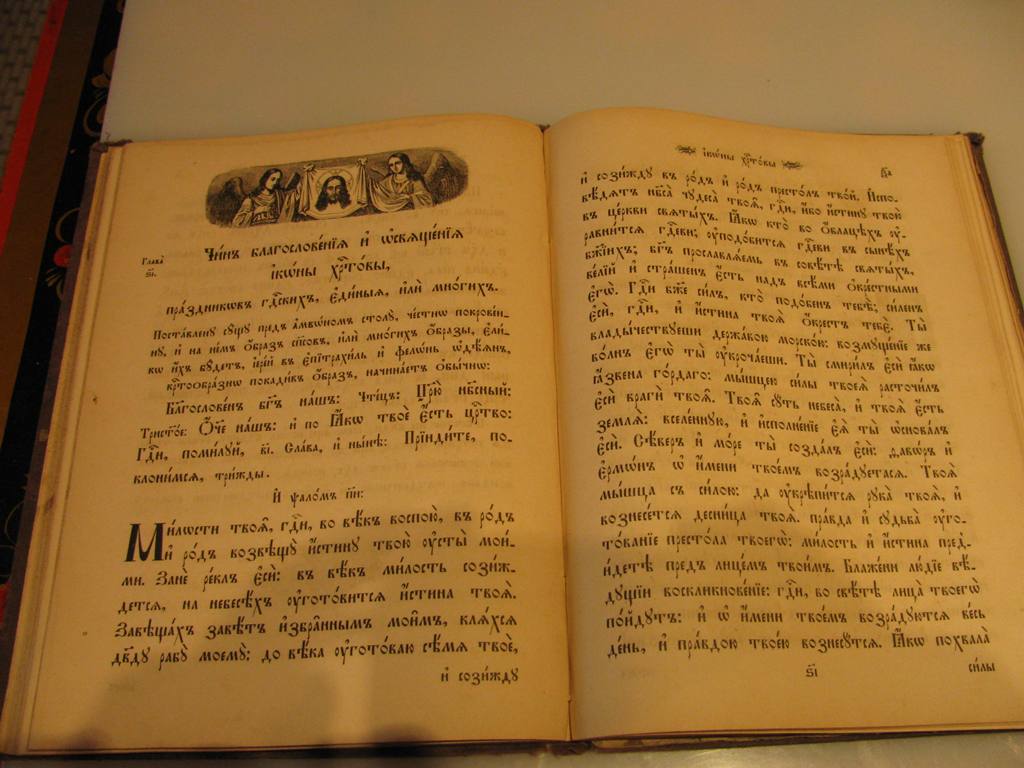 Чи́нъ благослове́нїѧ и҆ ѡ҆свѧще́нїѧ
Глава̀
ѕ҃і.
і҆кѡ́ны хрⷭ҇то́вы,
пра́здникѡвъ гдⷭ҇скихъ, є҆ди́ныѧ, и҆лѝ мно́гихъ.
Поста́влену сꙋ́щꙋ пред̾ а҆мвѡ́номъ столꙋ̀, че́стнѡ покрове́н-
нꙋ, и҆ на не́мъ ѻ҆́бразъ сп҃со́въ, и҆лѝ мно́гихъ ѻ҆́бразы, є҆ли́-
кѡ и҆́хъ бꙋ́детъ, і҆ере́й въ є҆пїтрахи́ль и҆ фело́нь ѡ҆дѣ́ѧнъ,
крⷭ҇тоѻбра́знѡ покади́въ ѻ҆́бразъ, начина́етъ ѻ҆бы́чнѡ:
Бл҃гослове́нъ бг҃ъ на́шъ: Чте́цъ: Цр҃ю̀ нбⷭ҇ный:
Трист҃о́е: Ѻ҆́ч҃е на́шъ: и҆ по Ꙗ҆́кѡ твоѐ є҆́сть црⷭ҇тво:
Гдⷭ҇и, поми́лꙋй, в҃і. Сла́ва, и҆ ны́нѣ: Прїиди́те, по-
клони́мсѧ, три́жды.
И҆ ѱало́мъ п҃и:
Ми́лости твоѧ̑, гдⷭ҇и, во вѣ́къ воспою̀, въ ро́дъ
и҆ ро́дъ возвѣщꙋ̀ и҆́стинꙋ твою̀ ᲂу҆сты̑ мои́-
ми. Занѐ ре́клъ є҆сѝ: въ вѣ́къ ми́лость сози́ж-
детсѧ, на небесѣ́хъ ᲂу҆гото́витсѧ и҆́стина твоѧ̀.
Завѣща́хъ завѣ́тъ и҆збра̑ннымъ мои̑мъ, клѧ́хсѧ
дв҃дꙋ рабꙋ̀ моемꙋ̀: до вѣ́ка ᲂу҆гото́ваю сѣ́мѧ твоѐ,
и҆ сози́ждꙋ
і҆кѡ́ны хрⷭ҇то́вы
и҆ сози́ждꙋ въ ро́дъ и҆ ро́дъ престо́лъ тво́й. И҆спо-
вѣ́дѧтъ нб҃са̀ чꙋдеса̀ твоѧ̑, гдⷭ҇и, и҆́бо и҆́стинꙋ твою̀
въ це́ркви свѧты́хъ. Ꙗ҆́кѡ кто̀ во ѻ҆́блацѣхъ ᲂу҆-
равни́тсѧ гдⷭ҇еви; ᲂу҆подо́битсѧ гдⷭ҇еви въ сынѣ́хъ
бж҃їихъ; бг҃ъ прославлѧ́емь въ совѣ́тѣ свѧты́хъ,
ве́лїй и҆ стра́шенъ є҆́сть над̾ всѣ́ми ѻ҆кре́стными
є҆гѡ̀. Гдⷭ҇и бж҃е си́лъ, кто̀ подо́бенъ тебѣ̀; си́ленъ
є҆сѝ, гдⷭ҇и, и҆ и҆́стина твоѧ̀ ѻ҆́крестъ тебє̀. Ты̀
влады́чествꙋеши держа́вою морско́ю: возмꙋще́нїе же
во́лнъ є҆гѡ̀ ты̀ ᲂу҆кроча́еши. Ты̀ смири́лъ є҆сѝ ꙗ҆́кѡ
ꙗ҆́звена го́рдаго: мы́шцею си́лы твоеѧ̀ расточи́лъ
є҆сѝ врагѝ твоѧ̑. Твоѧ̑ сꙋ́ть небеса̀, и҆ твоѧ̀ є҆́сть
землѧ̀: вселе́ннꙋю, и҆ и҆сполне́нїе є҆ѧ̀ ты̀ ѡ҆снова́лъ
є҆сѝ. Сѣ́веръ и҆ мо́ре ты̀ созда́лъ є҆сѝ: ѳавѡ́ръ и҆
є҆рмѡ́нъ ѡ҆ и҆́мени твое́мъ возра́дꙋетасѧ. Твоѧ̀
мы́шца съ си́лою: да ᲂу҆крѣпи́тсѧ рꙋка̀ твоѧ̀, и҆
вознесе́тсѧ десни́ца твоѧ̀. пра́вда и҆ сꙋдьба̀ ᲂу҆го-
то́ванїе престо́ла твоегѡ̀: ми́лость и҆ и҆́стина пред̾-
и́детѣ пред̾ лице́мъ твои́мъ. Блаже́ни лю́дїе вѣ́-
дꙋщїи воскликнове́нїе: гдⷭ҇и, во свѣ́тѣ лица̀ твоегѡ̀
по́йдꙋтъ: и҆ ѡ҆ и҆́мени твое́мъ возра́дꙋютсѧ ве́сь
де́нь, и҆ пра́вдою твое́ю вознесꙋ́тсѧ. Ꙗ҆́кѡ похвала̀
ѕ҃і
си́лы